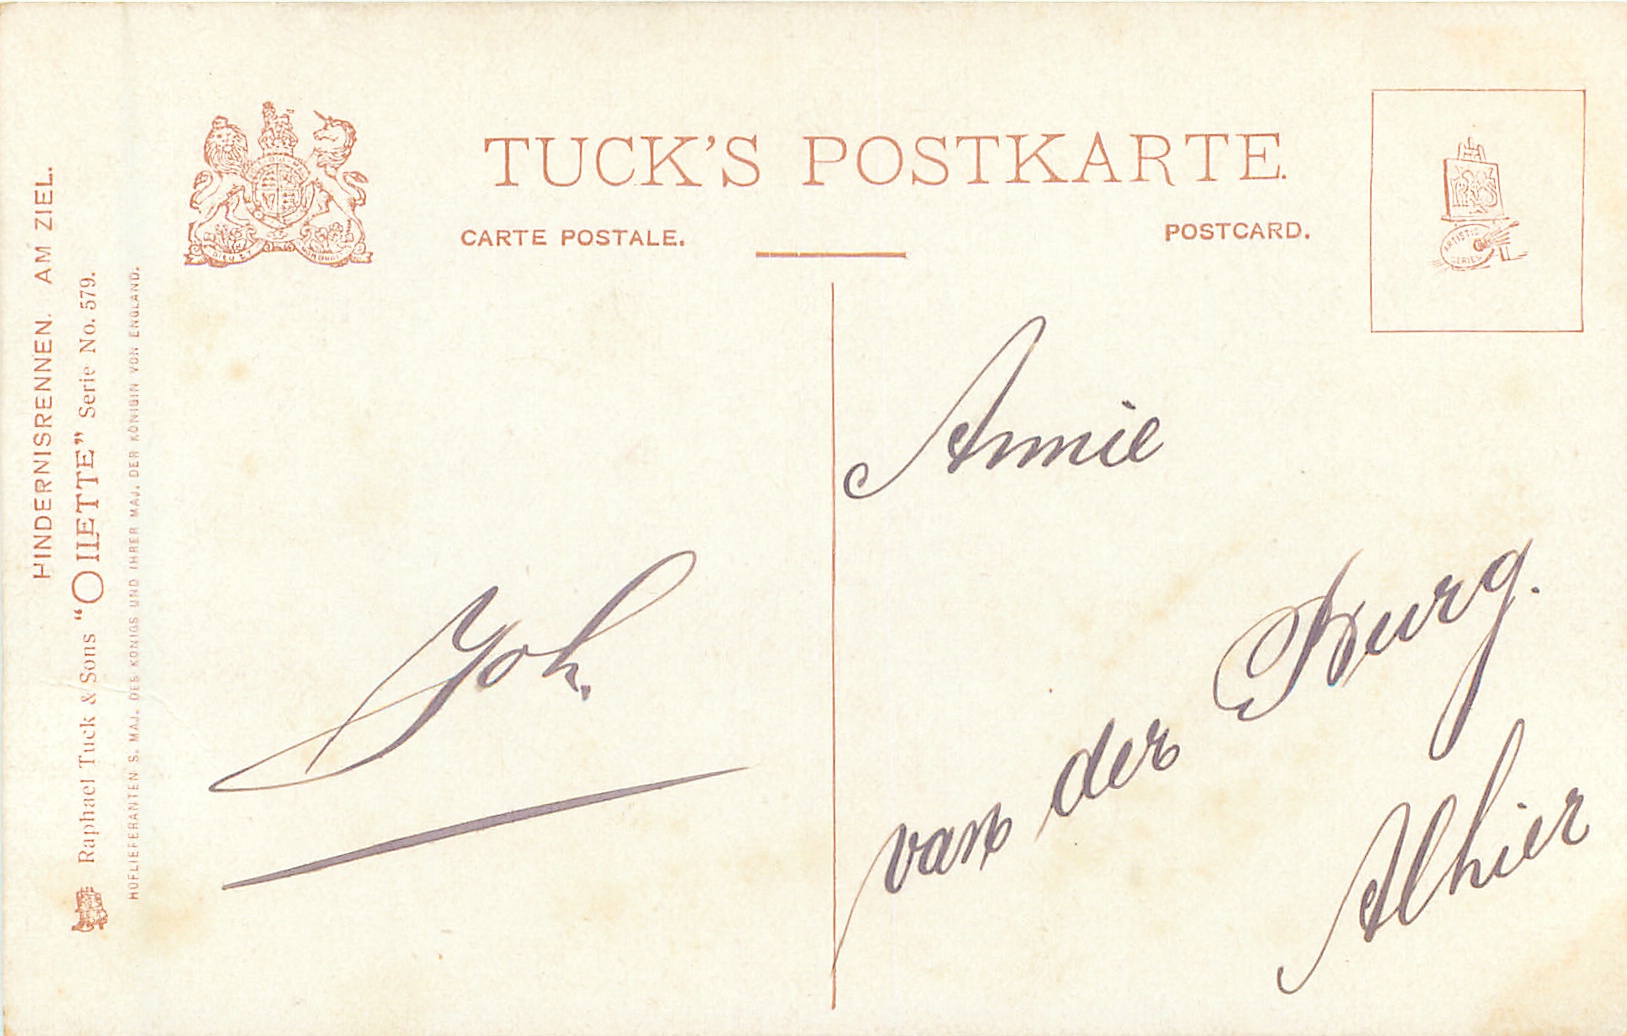 HINDERNISRENNEN. AM ZIEL.
Raphael Tuck & Sons "OILETTE" Serie No. 579.
HOFLIEFERANTEN S. MAJ. DES KÖNIGS UND IHRER MAJ. DER KÖNIGIN VON ENGLAND.
TUCK'S POSTKARTE.
CARTE POSTALE.
POSTCARD.
ARTISTIC
SERIES
Joh.
Annie
van der Burg.
Alhier